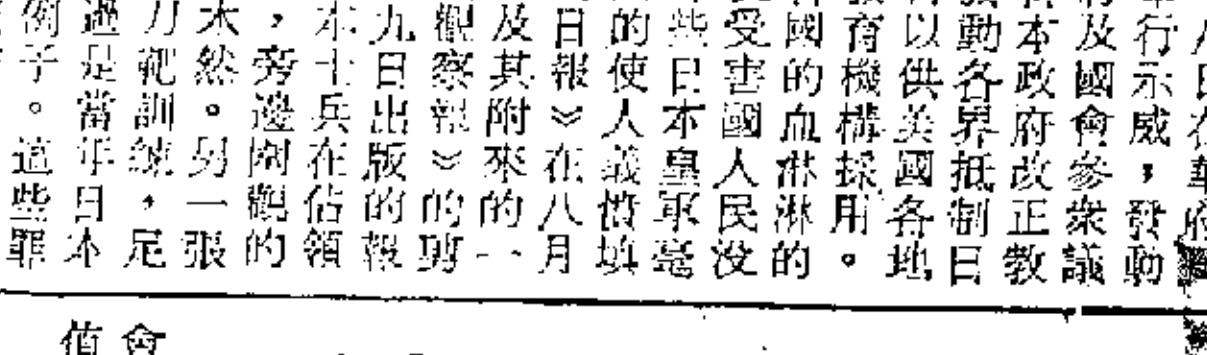 日在華府
行示威，發動
及國會參衆議
本政府改正教
動各界抵制日
以供美國各地
育機構採用。
國的血淋淋的
受害國人民没
些日本皇軍毫
的使人義憤填
日報》在八月
及其附來的一、
觀察報》的剪
九日出版的報
本士兵在佔領
，旁邊圍觀的
木然。另一張
刀靶訓練，足
過是當年日本
例子。這些罪
會
值